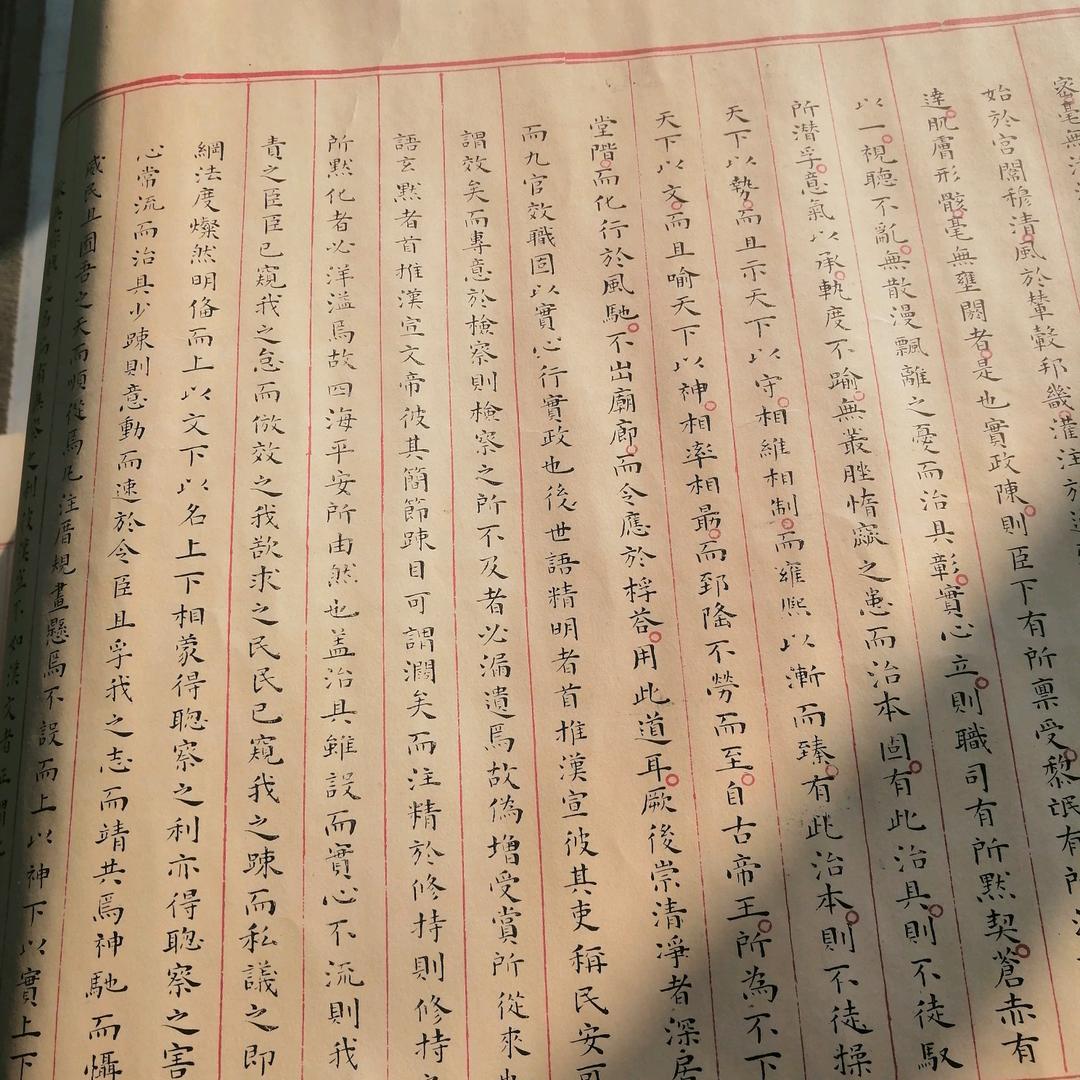 密毫無
始於宮闈穆清風於輦轂邦畿灌注於
達肌膚形骸毫無壅閼者是也實政陳則臣下有所稟受黎氓有所
以一視聽不亂無散漫飄離之憂而治具彰實心立則職司有所默契蒼赤有
所潛孚意氣以承軌度不踰無叢脞惰窳之患而治本固有此治具則不徒馭
天下以勢而且示天下以守相維相制而雍熙以漸而臻有此治本則不徒操
天下以文而且喻天下以神相率相勗而郅隆不勞而至自古帝王所為不下
堂階而化行於風馳不出廟廊而令應於桴荅用此道耳厥後崇清淨者深居
而九官效職固以實心行實政也後世語精明者首推漢宣彼其吏稱民安可
謂效矣而專意於檢察則檢察之所不及者必漏遺焉故偽增受賞所從來
語玄默者首推漢宣文帝彼其簡節踈目可謂濶矣而注精於修持則修持
所默化者必洋溢焉故四海平安所由然也盖治具雖設而實心不流則我
責之臣臣已窺我之怠而倣效之我欲求之民民已窺我之踈而私議之即
綱法度燦然明俻而上以文下以名上下相蒙得聰察之利亦得聰察之害
心常流而治具少踈則意動而速於令臣且孚我之志而靖共焉神馳而懾
威民且囿吾之天而順從焉凡注厝規畫懸焉不設而上以神下以實上下